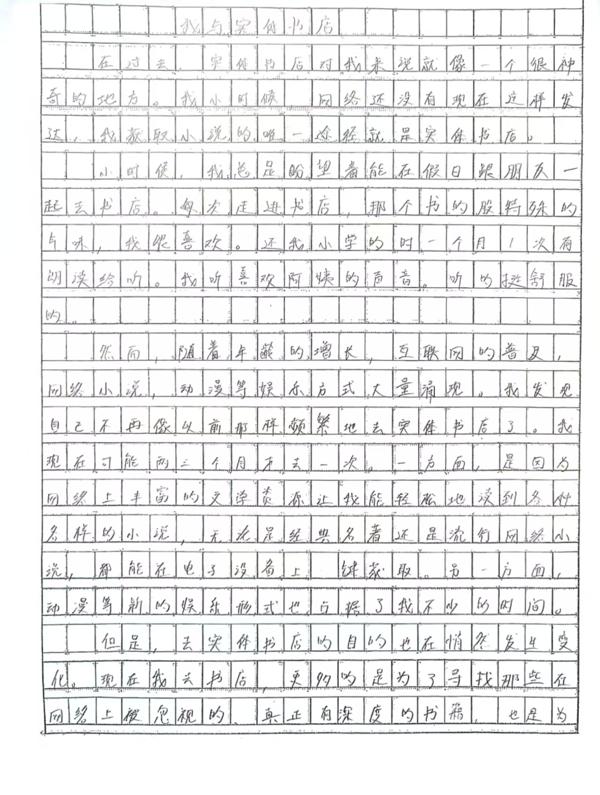 我与实体书店
在过去，实体书店对我来说就像一个很神
奇的地方。我小时候 网络还没有现在这样发
达，我获取小说的唯一途径就是实体书店。
小时候，我总是盼望着能在假日跟朋友一
起去书店。每次走进书店，那个书的股特殊的
气味，我很喜欢。还我小学的时一个月1次有
朗读给听。我听喜欢阿姨的声音。听的挺舒服
的。
然而，随着年龄的增长，互联网的普及，
网络小说，动漫等娱乐方式大量涌现。我发现
自己不再像以前那样频繁地去实体书店了。我
现在可能两三个月不去一次。一方面，是因为
网络上丰富的文学资源让我能轻松地读到各种
各样的小说，无论是经典名著还是流行网络小
说，都能在电子设备上 键获取。另一方面，
动漫等新的娱乐形式也占据了我不少的时间。
但是，去实体书店的目的也在悄然发生变
化。现在我去书店，更多的是为了寻找那些在
网络上被忽视的、真正有深度的书籍，也是为